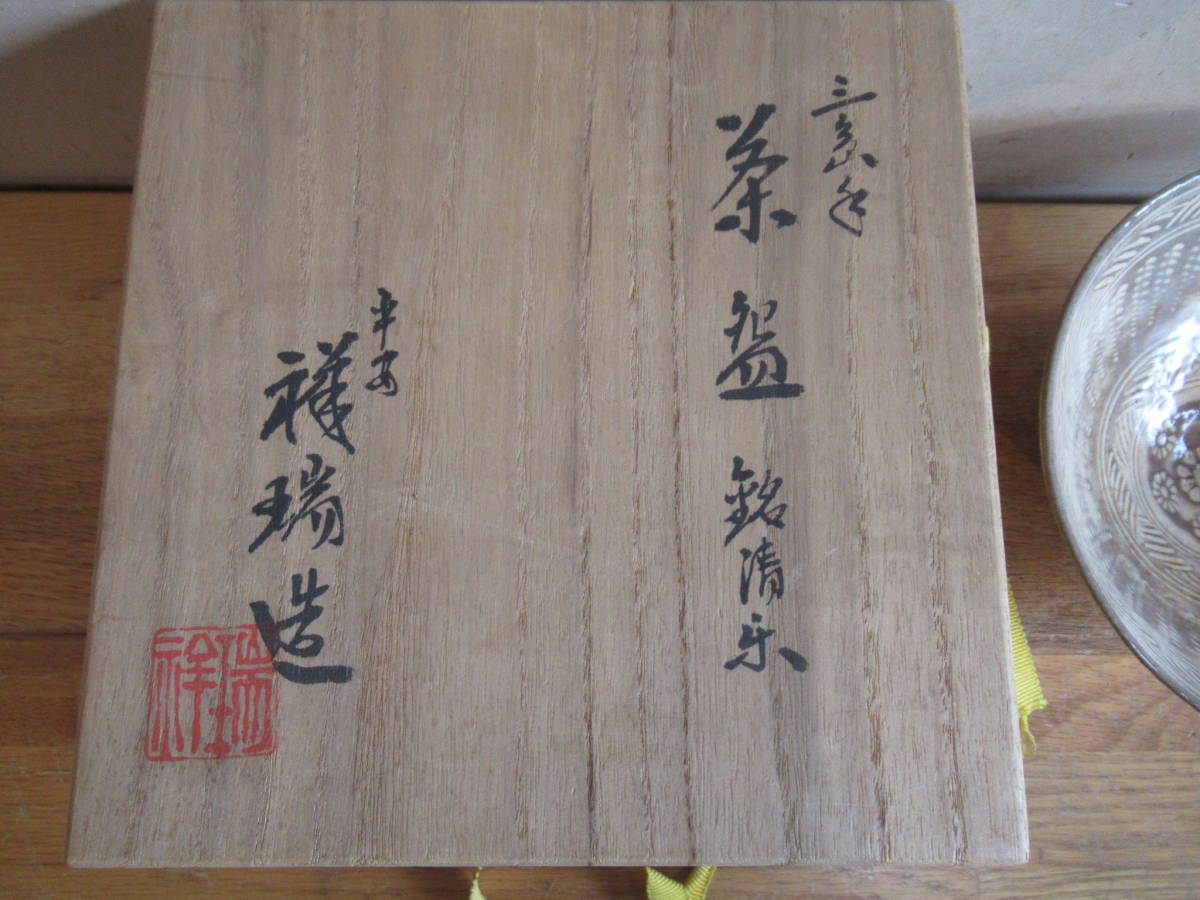 三島手
茶盌 銘清楽
平安
祥瑞造
祥瑞